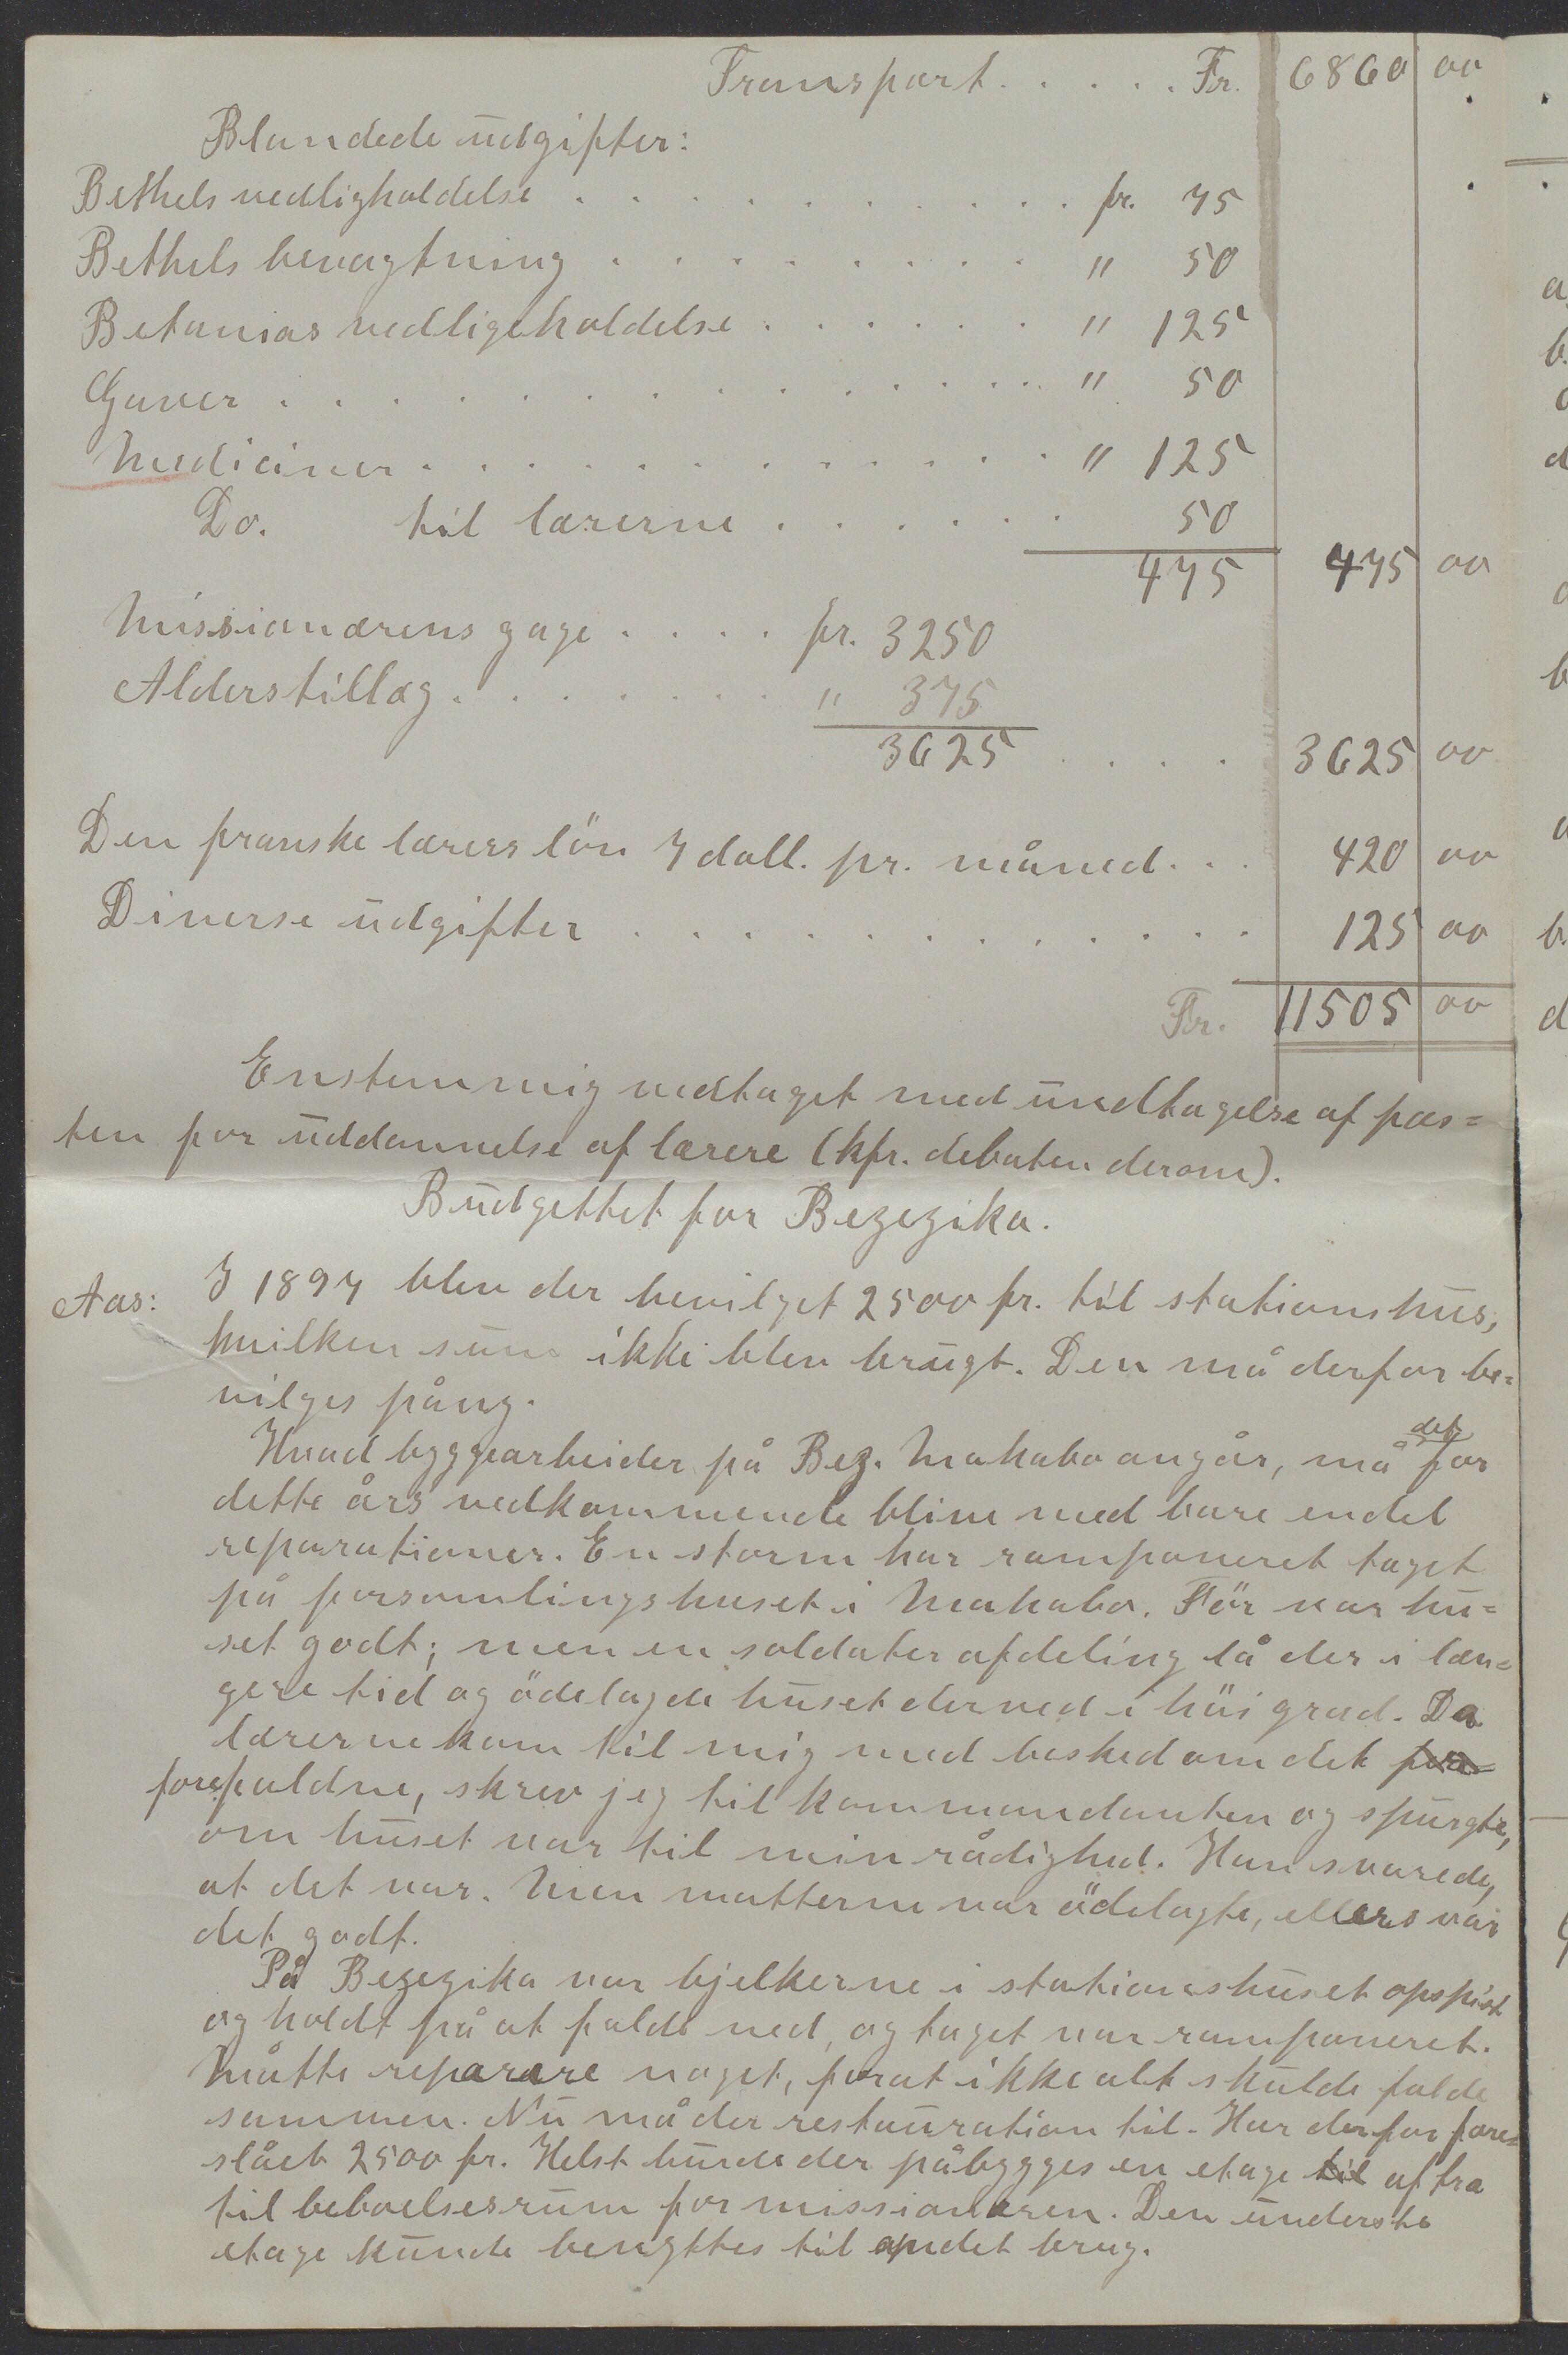 Transport . . . . . Fr. 6860 00
Blandede udgifter:
Bethels vedligholdelse . . . . . . . . . fr. 75
Bethels bevogtning . . . . . . . . " 50
Betanias vedligeholdelse . . . . . . " 125
Gaver . . . . . . . . . . . . . " 50
Mediciner . . . . . . . . . . . " 125
Do. til lærerne . . . . . . 50
475 475 00
Missionærens gage . . . . fr. 3250
Alderstillæg . . . . . . " 375
3625 . . . . 3625 00
Den franske lærers lön 7 doll. pr. måned . . . 420 00
Diverse udgifter . . . . . . . . . . . 125 00
Fr. 11505 00
Enstemmig vedtaget med undtagelse af pos=
ten for uddannelse af lærere (kfr. debatten derom).
Budgettet for Bezezika.
Aas: I 1897 blev der bevilget 2500 fr. til stationshus,
hvilken sum ikke blev brugt. Den må derfor be=
vilges påny.
Hvad byggearbeider på Bez. Mahabo angår, må det for
dette års vedkommende blive med bare endel
reparationer. En storm har ramponeret taget
på forsamlingshuset i Mahabo. För var hu=
set godt; men en soldater afdeling lå der i læn=
gere tid og ödelagde huset derved i höi grad. Da
lærerne kom til mig med besked om det
forefaldne, skrev jeg til kommandanten og spurgte,
om huset var til min rådighed. Han svarede,
at det var. Men matterne var ödelagte, ellers var
det godt.
På Bezezika var bjelkerne i stationshuset opspist
og holdt på at falde ned, og taget var ramponeret.
Måtte reparere noget, forat ikke alt skulde falde
sammen. Nu må der restauration til. Har derfor fore=
slået 2500 fr. Helst burde der påbygges en etage til af træ
til beboelsesrum for missionæren. Den underste
etage kunde benyttes til andet brug.